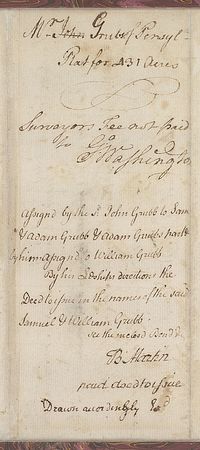 Mr. John Grubb Pensyl
Plat for 431 Acres
Surveyors Fee not paid
to G Washington
Assignd by the sd. John Grubb to Sam
& Adam Grubb & Adam Grubbs part
by him Assignd to William Grubb
By his directions the
Deed to issue in the names of the said
Samuel & William Grubb.
See the inclosed Bond &
B. Martin
deed to issue
Drawn accordingly Exd